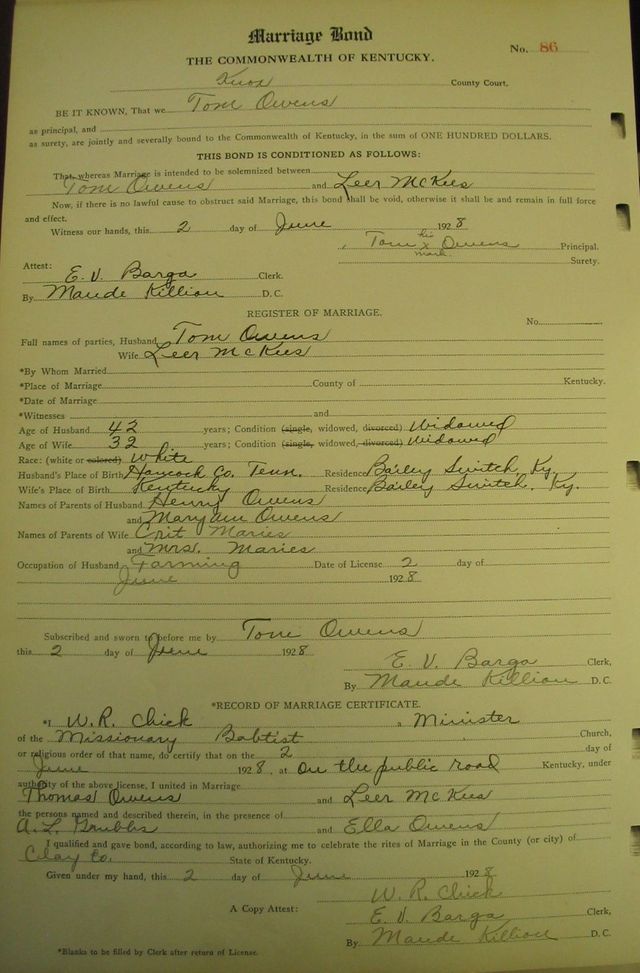 Marriage Bond
No. 86
THE COMMONWEALTH OF KENTUCKY.
Knox County Court,
BE IT KNOWN, That we Tom Owens
as principal, and
as surety, are jointly and severally bound to the Commonwealth of Kentucky, in the sum of ONE HUNDRED DOLLARS.
THIS BOND IS CONDITIONED AS FOLLOWS:
That, whereas Marriage is intended to be solemnized between
Tom Owens and Leer McKees
Now, if there is no lawful cause to obstruct said Marriage, this bond shall be void, otherwise it shall be and remain in full force
and effect.
Witness our hands, this 2 day of June 1928
Tom his x mark Owens Principal.
Surety.
Attest:
E. V. Barga Clerk.
By Maude Killion D. C.
REGISTER OF MARRIAGE.
No.
Full names of parties, Husband Tom Owens
Wife Leer McKees
*By Whom Married
*Place of Marriage County of Kentucky.
*Date of Marriage
*Witnesses and
Age of Husband 42 years; Condition (single, widowed, divorced) Widowed
Age of Wife 32 years; Condition (single, widowed, divorced) Widowed
Race: (white or colored) White
Husband's Place of Birth Hancock Co. Tenn. Residence Bailey Switch, Ky.
Wife's Place of Birth Kentucky Residence Bailey Switch, Ky.
Names of Parents of Husband Henry Owens
and Maryann Owens
Names of Parents of Wife Crit Maries
and Mrs. Maries
Occupation of Husband Farming Date of License 2 day of
June 1928
Subscribed and sworn to before me by Tom Owens
this 2 day of June 1928
E. V. Barga Clerk,
By Maude Killion D. C.
*RECORD OF MARRIAGE CERTIFICATE.
*I W. R. Chick a Minister
of the Missionary Babtist Church,
or religious order of that name, do certify that on the 2 day of
June 1928, at On the public road Kentucky, under
authority of the above license, I united in Marriage
Thomas Owens and Leer McKees
the persons named and described therein, in the presence of
A. L. Grubbs and Ella Owens
I qualified and gave bond, according to law, authorizing me to celebrate the rites of Marriage in the County (or city) of
Clay Co. State of Kentucky.
Given under my hand, this 2 day of June 1928
W. R. Chick
A Copy Attest: E. V. Barga Clerk,
By Maude Killion D. C.
*Blanks to be filled by Clerk after return of License.